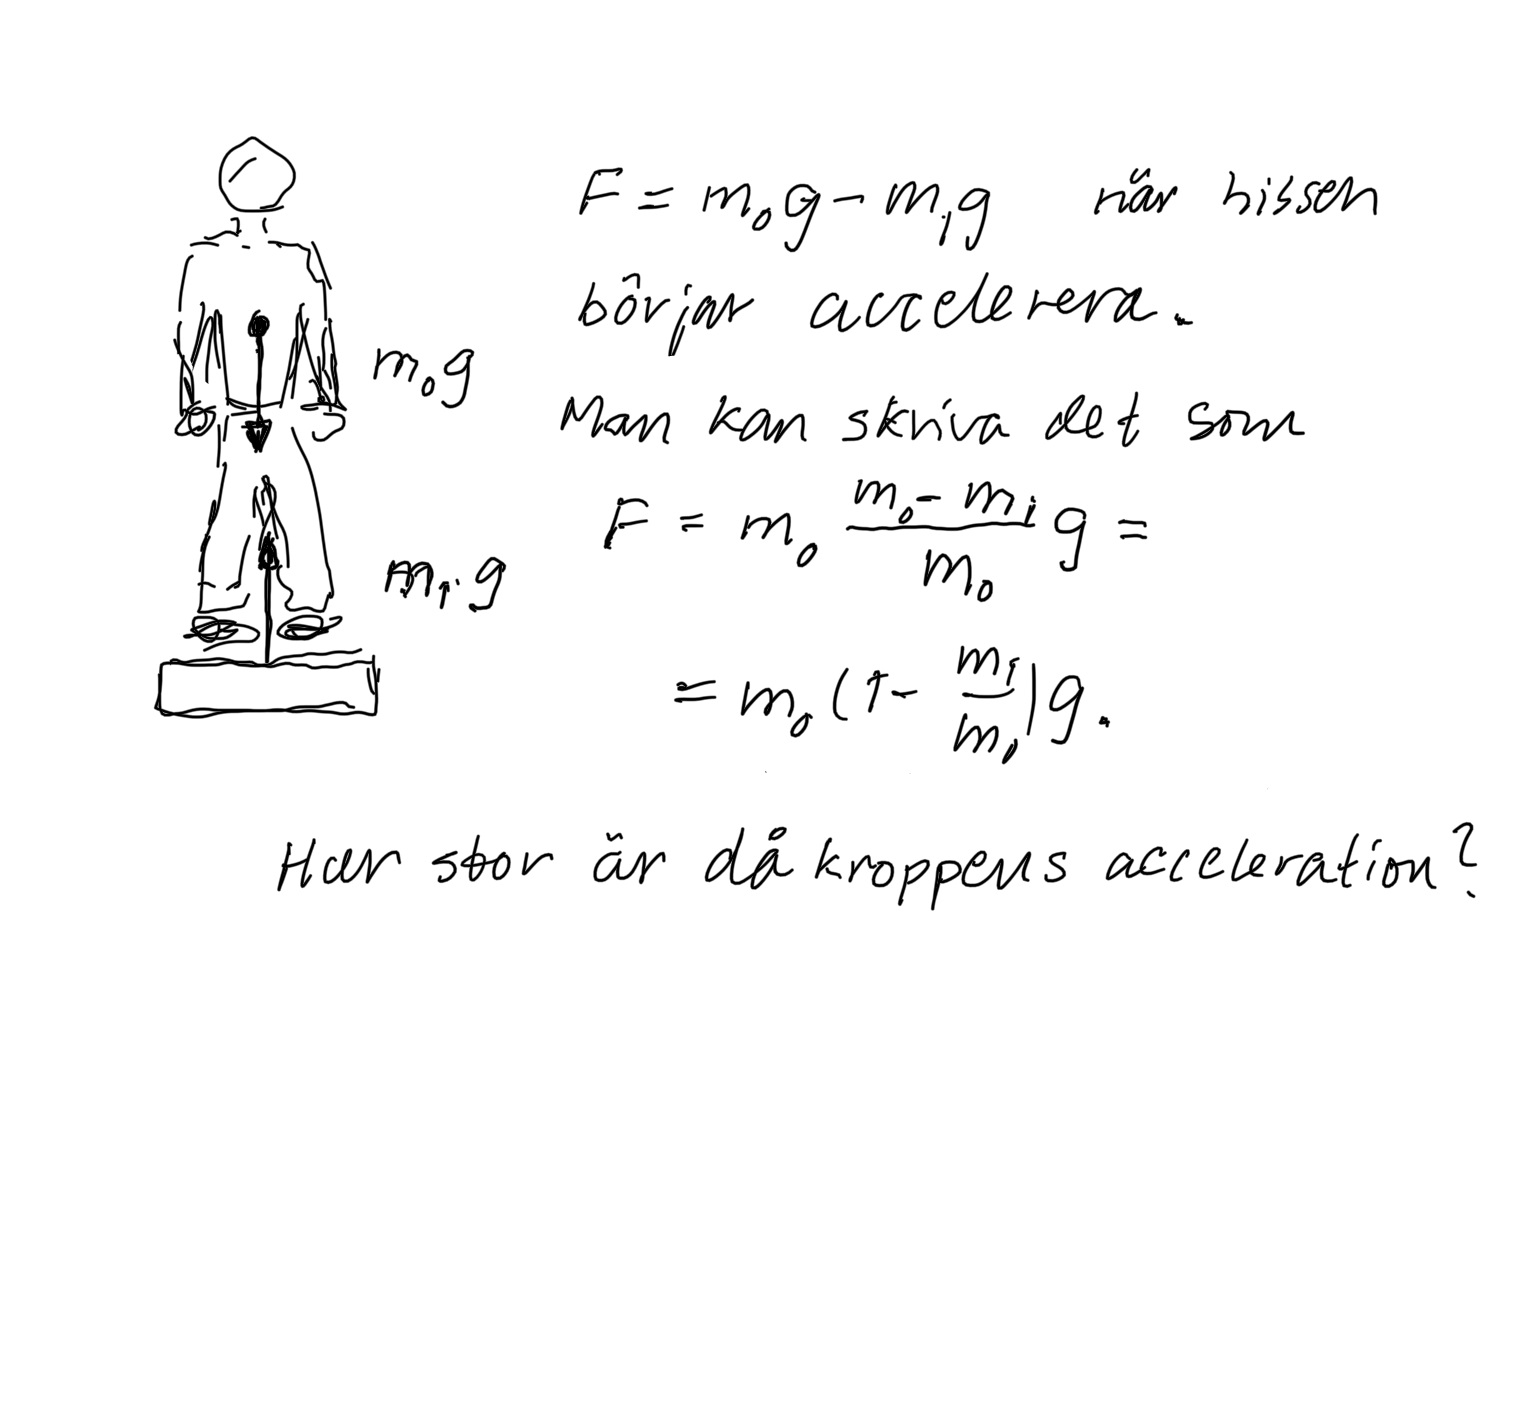 F = m₀g - m₁g när hissen
börjar accelerera.
m₀g
Man kan skriva det som
F = m₀ (m₀ - m₁)/m₀ g =
m₁g
= m₀ (1 - m₁/m₀) g.
Hur stor är då kroppens acceleration?